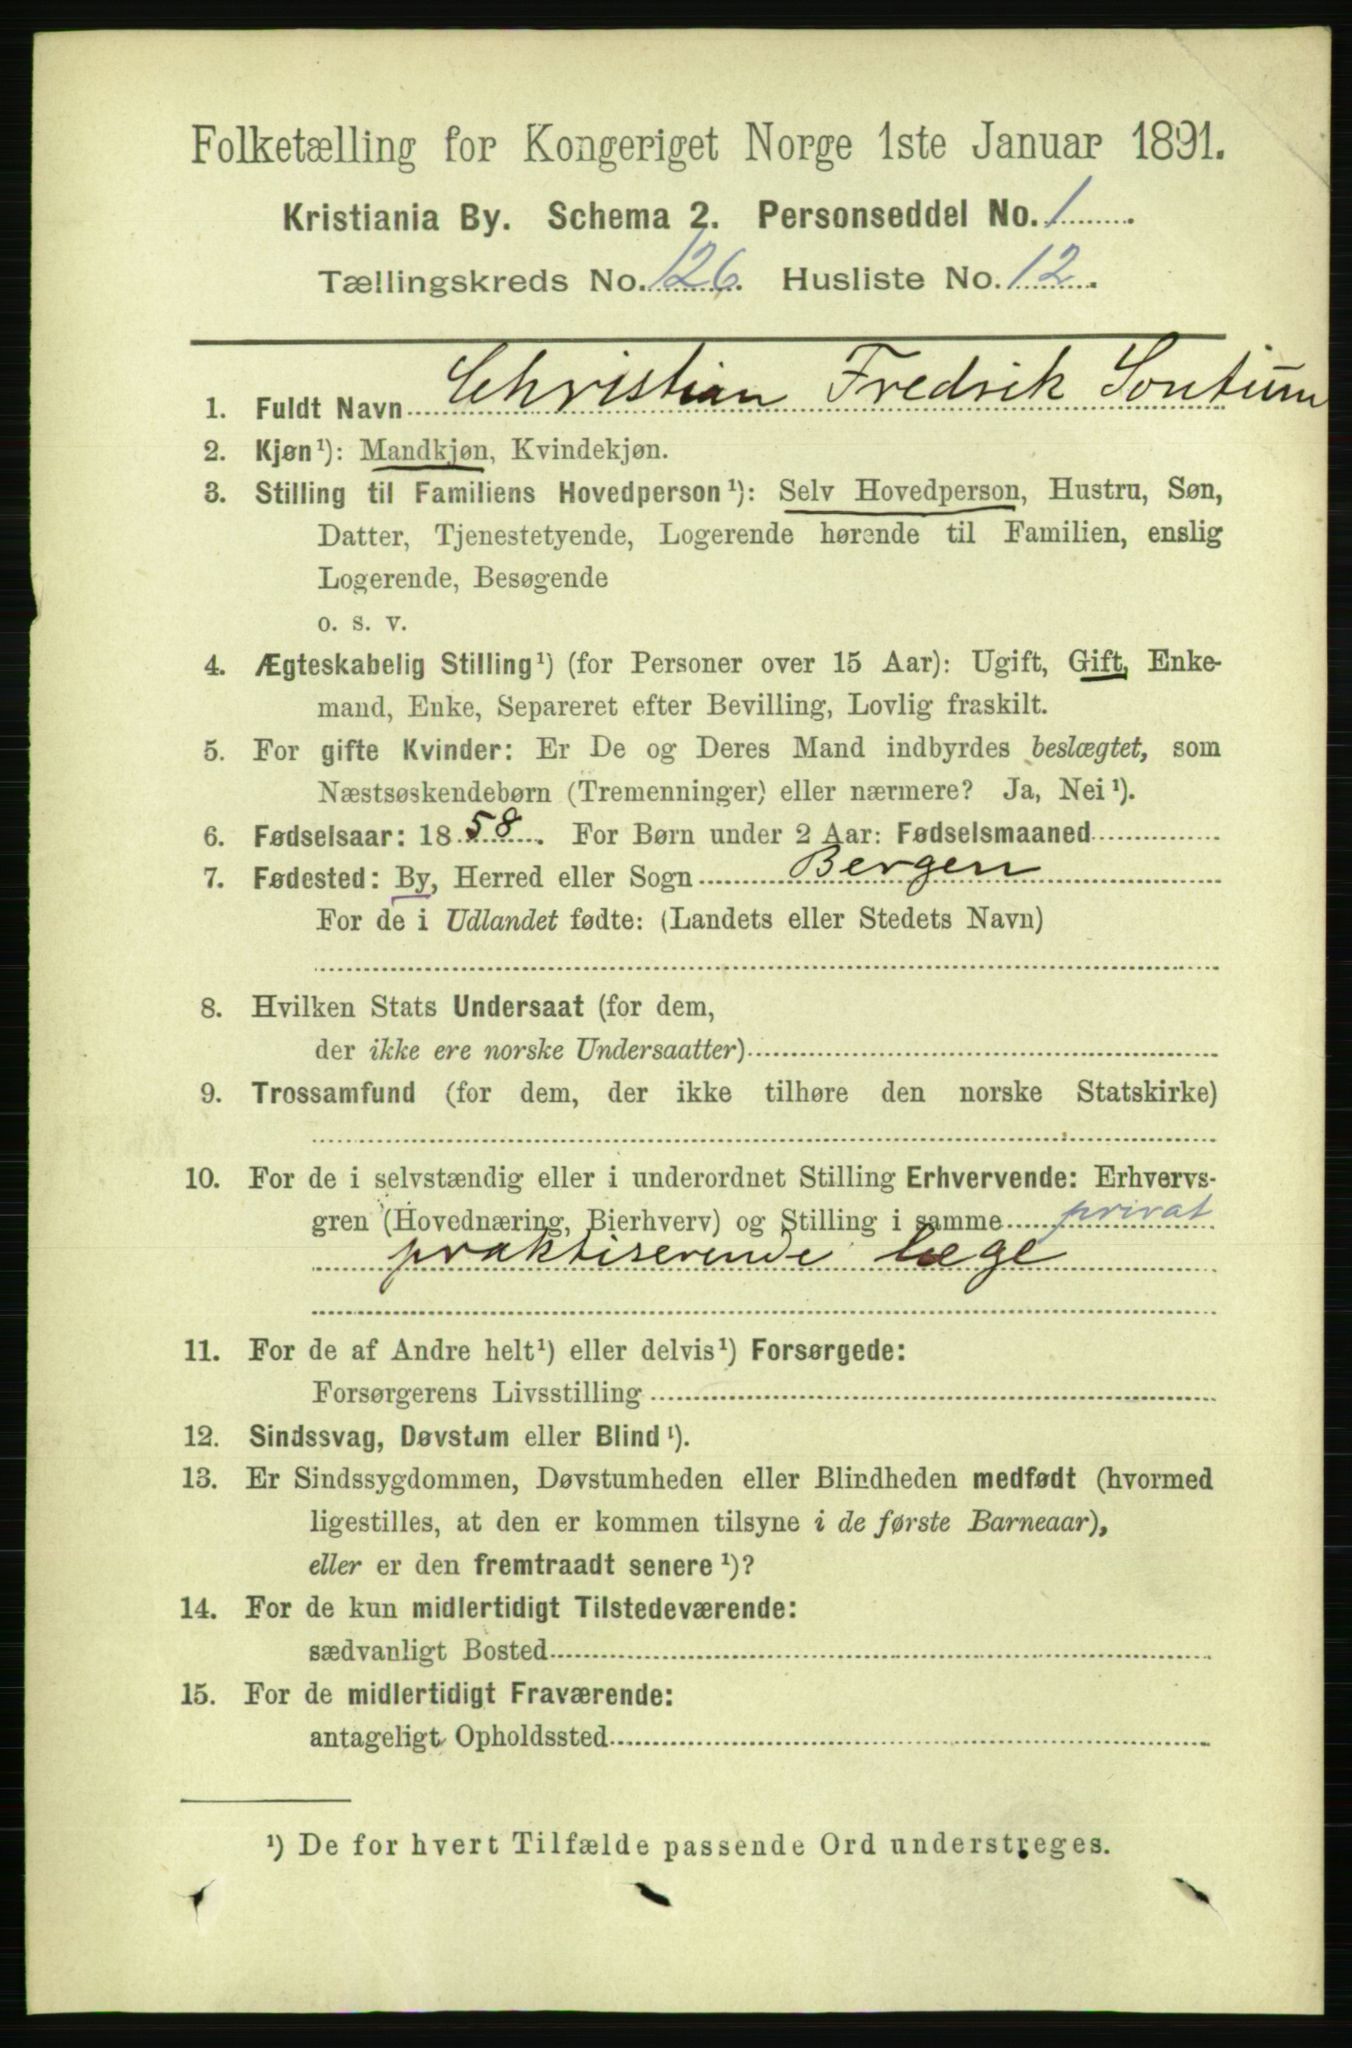 Folketælling for Kongeriget Norge 1ste Januar 1891.
Kristiania By. Schema 2. Personseddel No. 1
Tællingskreds No. 126. Husliste No. 12.
1. Fuldt Navn Christian Fredrik Sontum
2. Kjøn¹): Mandkjøn, Kvindekjøn.
3. Stilling til Familiens Hovedperson¹): Selv Hovedperson, Hustru, Søn,
Datter, Tjenestetyende, Logerende hørende til Familien, enslig
Logerende, Besøgende
o. s. v.
4. Ægteskabelig Stilling¹) (for Personer over 15 Aar): Ugift, Gift, Enke-
mand, Enke, Separeret efter Bevilling, Lovlig fraskilt.
5. For gifte Kvinder: Er De og Deres Mand indbyrdes beslægtet, som
Næstsøskendebørn (Tremenninger) eller nærmere? Ja, Nei¹).
6. Fødselsaar: 1858. For Børn under 2 Aar: Fødselsmaaned
7. Fødested: By, Herred eller Sogn Bergen
For de i Udlandet fødte: (Landets eller Stedets Navn)
8. Hvilken Stats Undersaat (for dem,
der ikke ere norske Undersaatter)
9. Trossamfund (for dem, der ikke tilhøre den norske Statskirke)
10. For de i selvstændig eller i underordnet Stilling Erhvervende: Erhvervs-
gren (Hovednæring, Bierhverv) og Stilling i samme privat
praktiserende læge
11. For de af Andre helt¹) eller delvis¹) Forsørgede:
Forsørgerens Livsstilling
12. Sindssvag, Døvstum eller Blind¹).
13. Er Sindssygdommen, Døvstumheden eller Blindheden medfødt (hvormed
ligestilles, at den er kommen tilsyne i de første Barneaar),
eller er den fremtraadt senere¹)?
14. For de kun midlertidigt Tilstedeværende:
sædvanligt Bosted
15. For de midlertidigt Fraværende:
antageligt Opholdssted
¹) De for hvert Tilfælde passende Ord understreges.